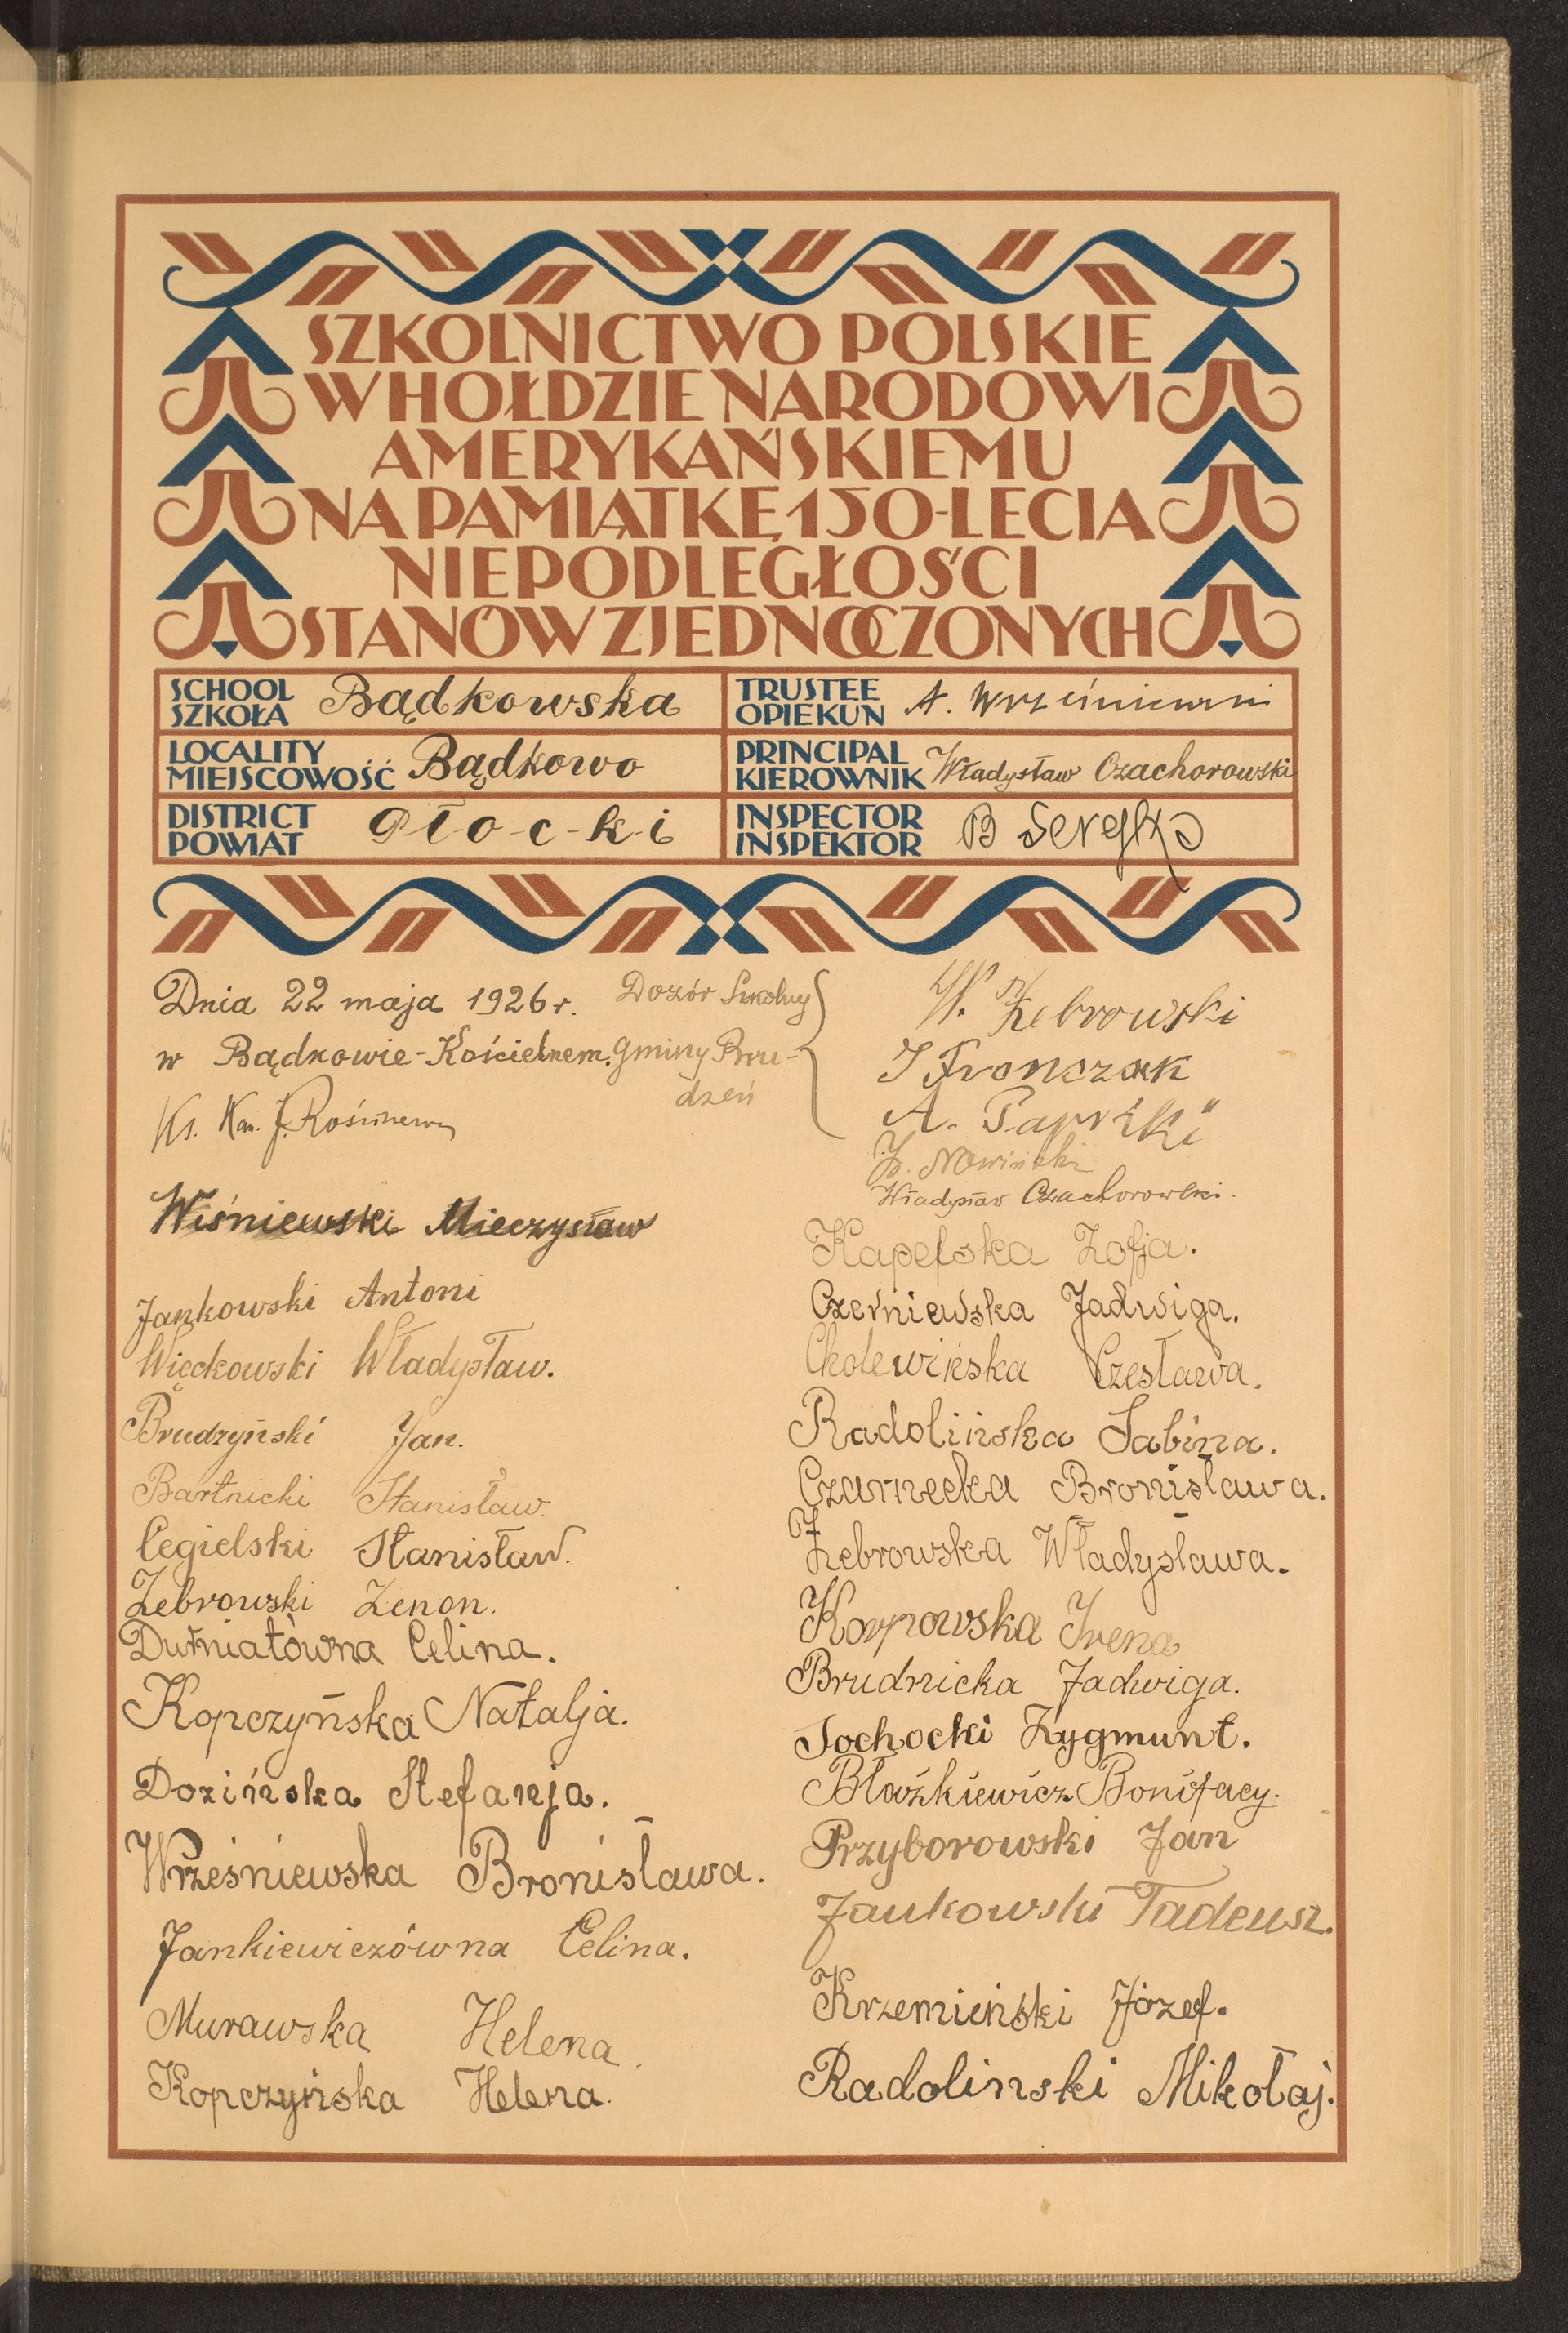 SZKOLNICTWO POLSKIE
W HOŁDZIE NARODOWI
AMERYKAŃSKIEMU
NA PAMIĄTKĘ 150-LECIA
NIEPODLEGŁOŚCI
STANÓW ZJEDNOCZONYCH
SCHOOL
SZKOŁA
Bądkowska
TRUSTEE
OPIEKUN
A.
LOCALITY
MIEJSCOWOŚĆ
Bądkowo
PRINCIPAL
KIEROWNIK
Władysław Czachorowski
DISTRICT
POWIAT
Pło-c-k-i
INSPECTOR
INSPEKTOR
B
Dnia 22 maja 1926 r.
w Bądkowie-Kościelnem.
Ks. Kan. J.
Dozór Szkolny
Gminy Bru-
dzeń
W. Żebrowski
J Fronczak
A.
Nowiński
Władysław Czachorowski.
Wiśniewski Mieczysław
Jankowski Antoni
Więckowski Władysław.
Brudzyński Jan.
Bartnicki Stanisław.
Cegielski Stanisław.
Żebrowski Zenon.
Dutniatówna Celina.
Kopczyńska Natalja.
Dozińska Stefanja.
Wrześniewska Bronisława.
Jankiewiczówna Celina.
Murawska Helena.
Kopczyńska Helena.
Zofja.
Czerniewska Jadwiga.
Cholewińska Czesława.
Radolińska Sabina.
Czarnecka Bronisława.
Żebrowska Władysława.
Karpowska Irena
Brudnicka Jadwiga.
Sochocki Zygmunt.
Błażkiewicz Bonifacy.
Przyborowski Jan
Jankowski Tadeusz.
Krzemieński Józef.
Radolinski Mikołaj.